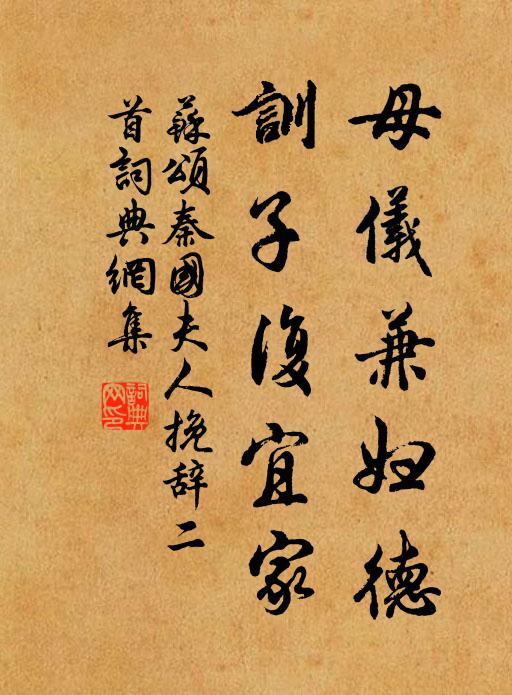 母儀兼婦德
訓子復宜家
蘇頌秦國夫人挽辞二
首詞典網集
詞典
网印